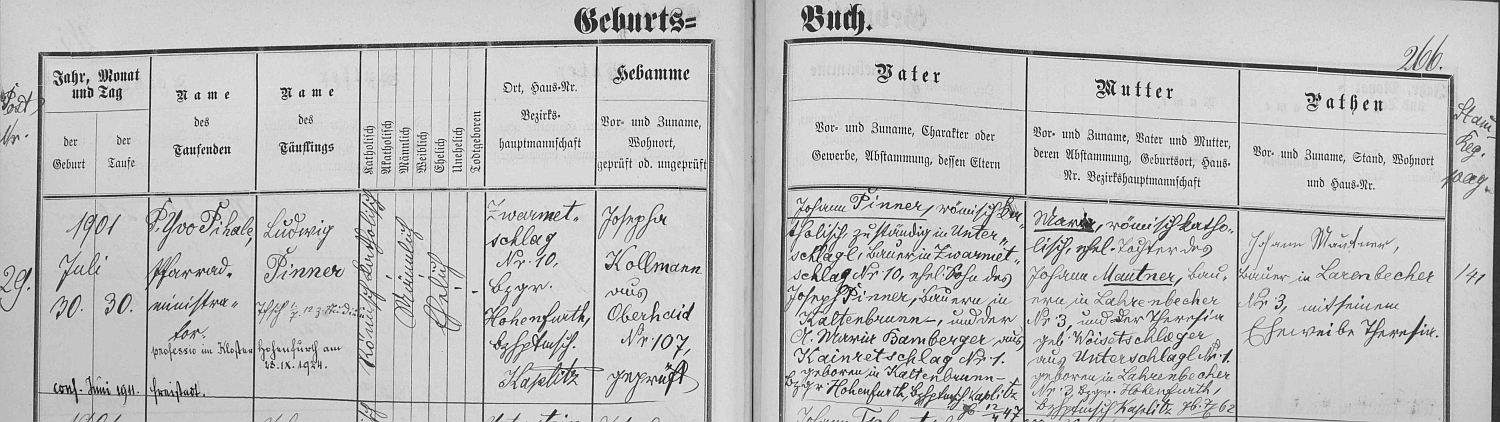 Geburts=
Buch.
266.
Port.
Nr.
Jahr, Monat
und Tag
der
Geburt
der
Taufe
Name
des
Taufenden
Name
des
Täuflings
Katholisch
Akatholisch
Männlich
Weiblich
Ehelich
Unehelich
Todtgeboren
Ort, Haus-Nr.
Bezirks-
hauptmannschaft
Hebamme
Vor- und Zuname,
Wohnort,
geprüft od. ungeprüft
Vater
Vor- und Zuname, Charakter oder
Gewerbe, Abstammung, dessen Eltern
Mutter
Vor- und Zuname, Vater und Mutter,
deren Abstammung, Geburtsort, Haus-
Nr. Bezirkshauptmannschaft
Pathen
Vor- und Zuname, Stand, Wohnort
und Haus-Nr.
Reg.
pag.
29.
1901
Juli
30. 30.
P. Yvo Pihale,
Pfarrad-
ministra-
tor.
professio im Kloster
conf. Juni 1911.
Freistadt.
Ludwig
Pinner
Hohenfurth am
28.IX.1924.
Römisch katholisch
Männlich
Ehelich
Zwarmet-
schlag
Nr. 10,
bzgr.
Hohenfurth,
bzhptmsch.
Kaplitz
Josepha
Kollmann
aus
Oberhaid
Nr. 107,
geprüft
Johann Pinner, römisch ka-
tholisch zuständig in Unter-
schlagl, Bauer in Zwarmet-
schlag Nr 10, ehel. Sohn des
Joseph Pinner, Bauern in
Kaltenbrunn, und der
Maria Bamberger aus
Kainretschlag Nr. 1.
geboren in Kaltenbrunn
bzgr Hohenfurth, bzhptmsch Kaplitz
12/4 47
Maria, römisch katho-
lisch, ehel. Tochter des
Johann Mautner, Bau-
ern in Lahrenbecher
Nr 3, und der Theresia
geb. Woisetschläger
aus Unterschlagl Nr 1.
geboren in Lahrenbecher
Nr 3, bzgr. Hohenfurth,
bzhptmsch Kaplitz 62
Johann Mautner,
Bauer in Larenbecher
Nr 3, mit seinem
Eheweibe Theresia.
141